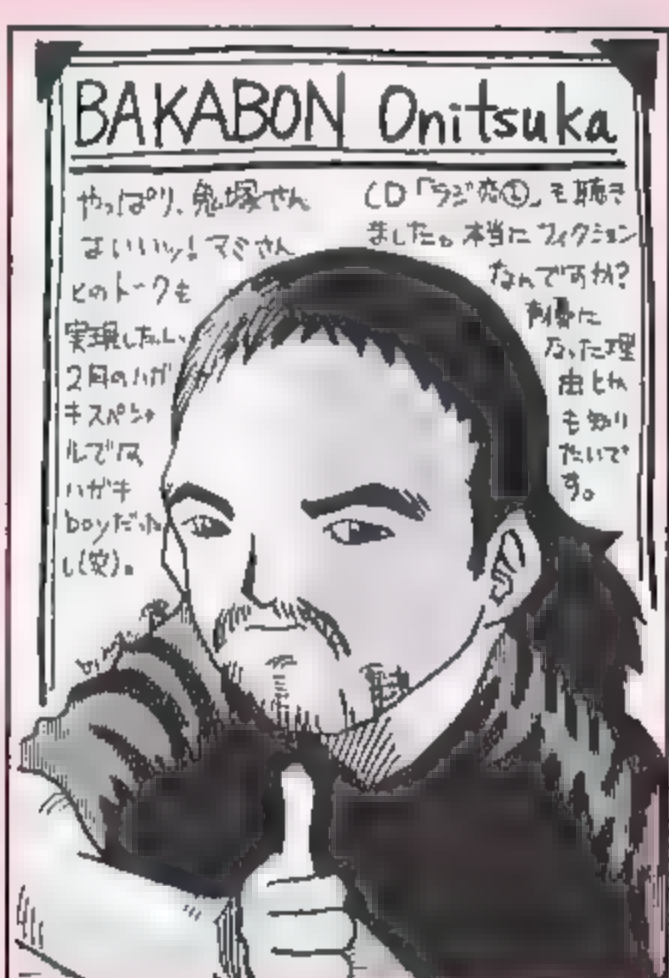 BAKABON Onitsuka
やっぱり、鬼塚さん
はいいッ!マミさん
とのトークも
実現したし、
2月のハガ
キスペシャ
ルでは
ハガキ
boyだった
し(笑)。
CD「ラジ売①」も聴き
ました。本当にフィクション
なんですか?
に
なった理
由とか
も知り
たいで
す。